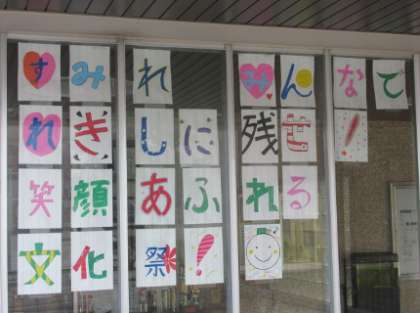 すみれ みんなで
れきしに残せ!
笑顔あふれる
文化祭!